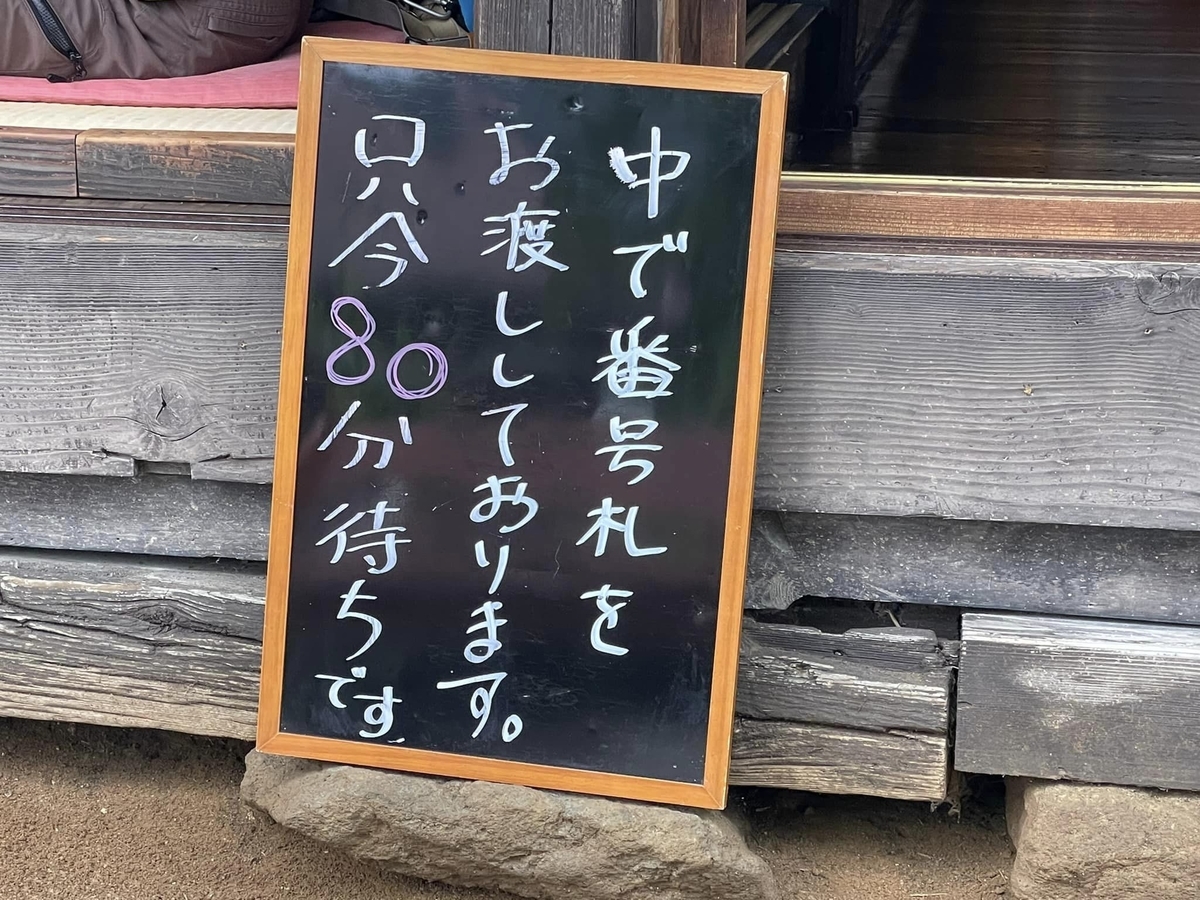 中で番号札を
お渡ししております。
只今80分待ちです